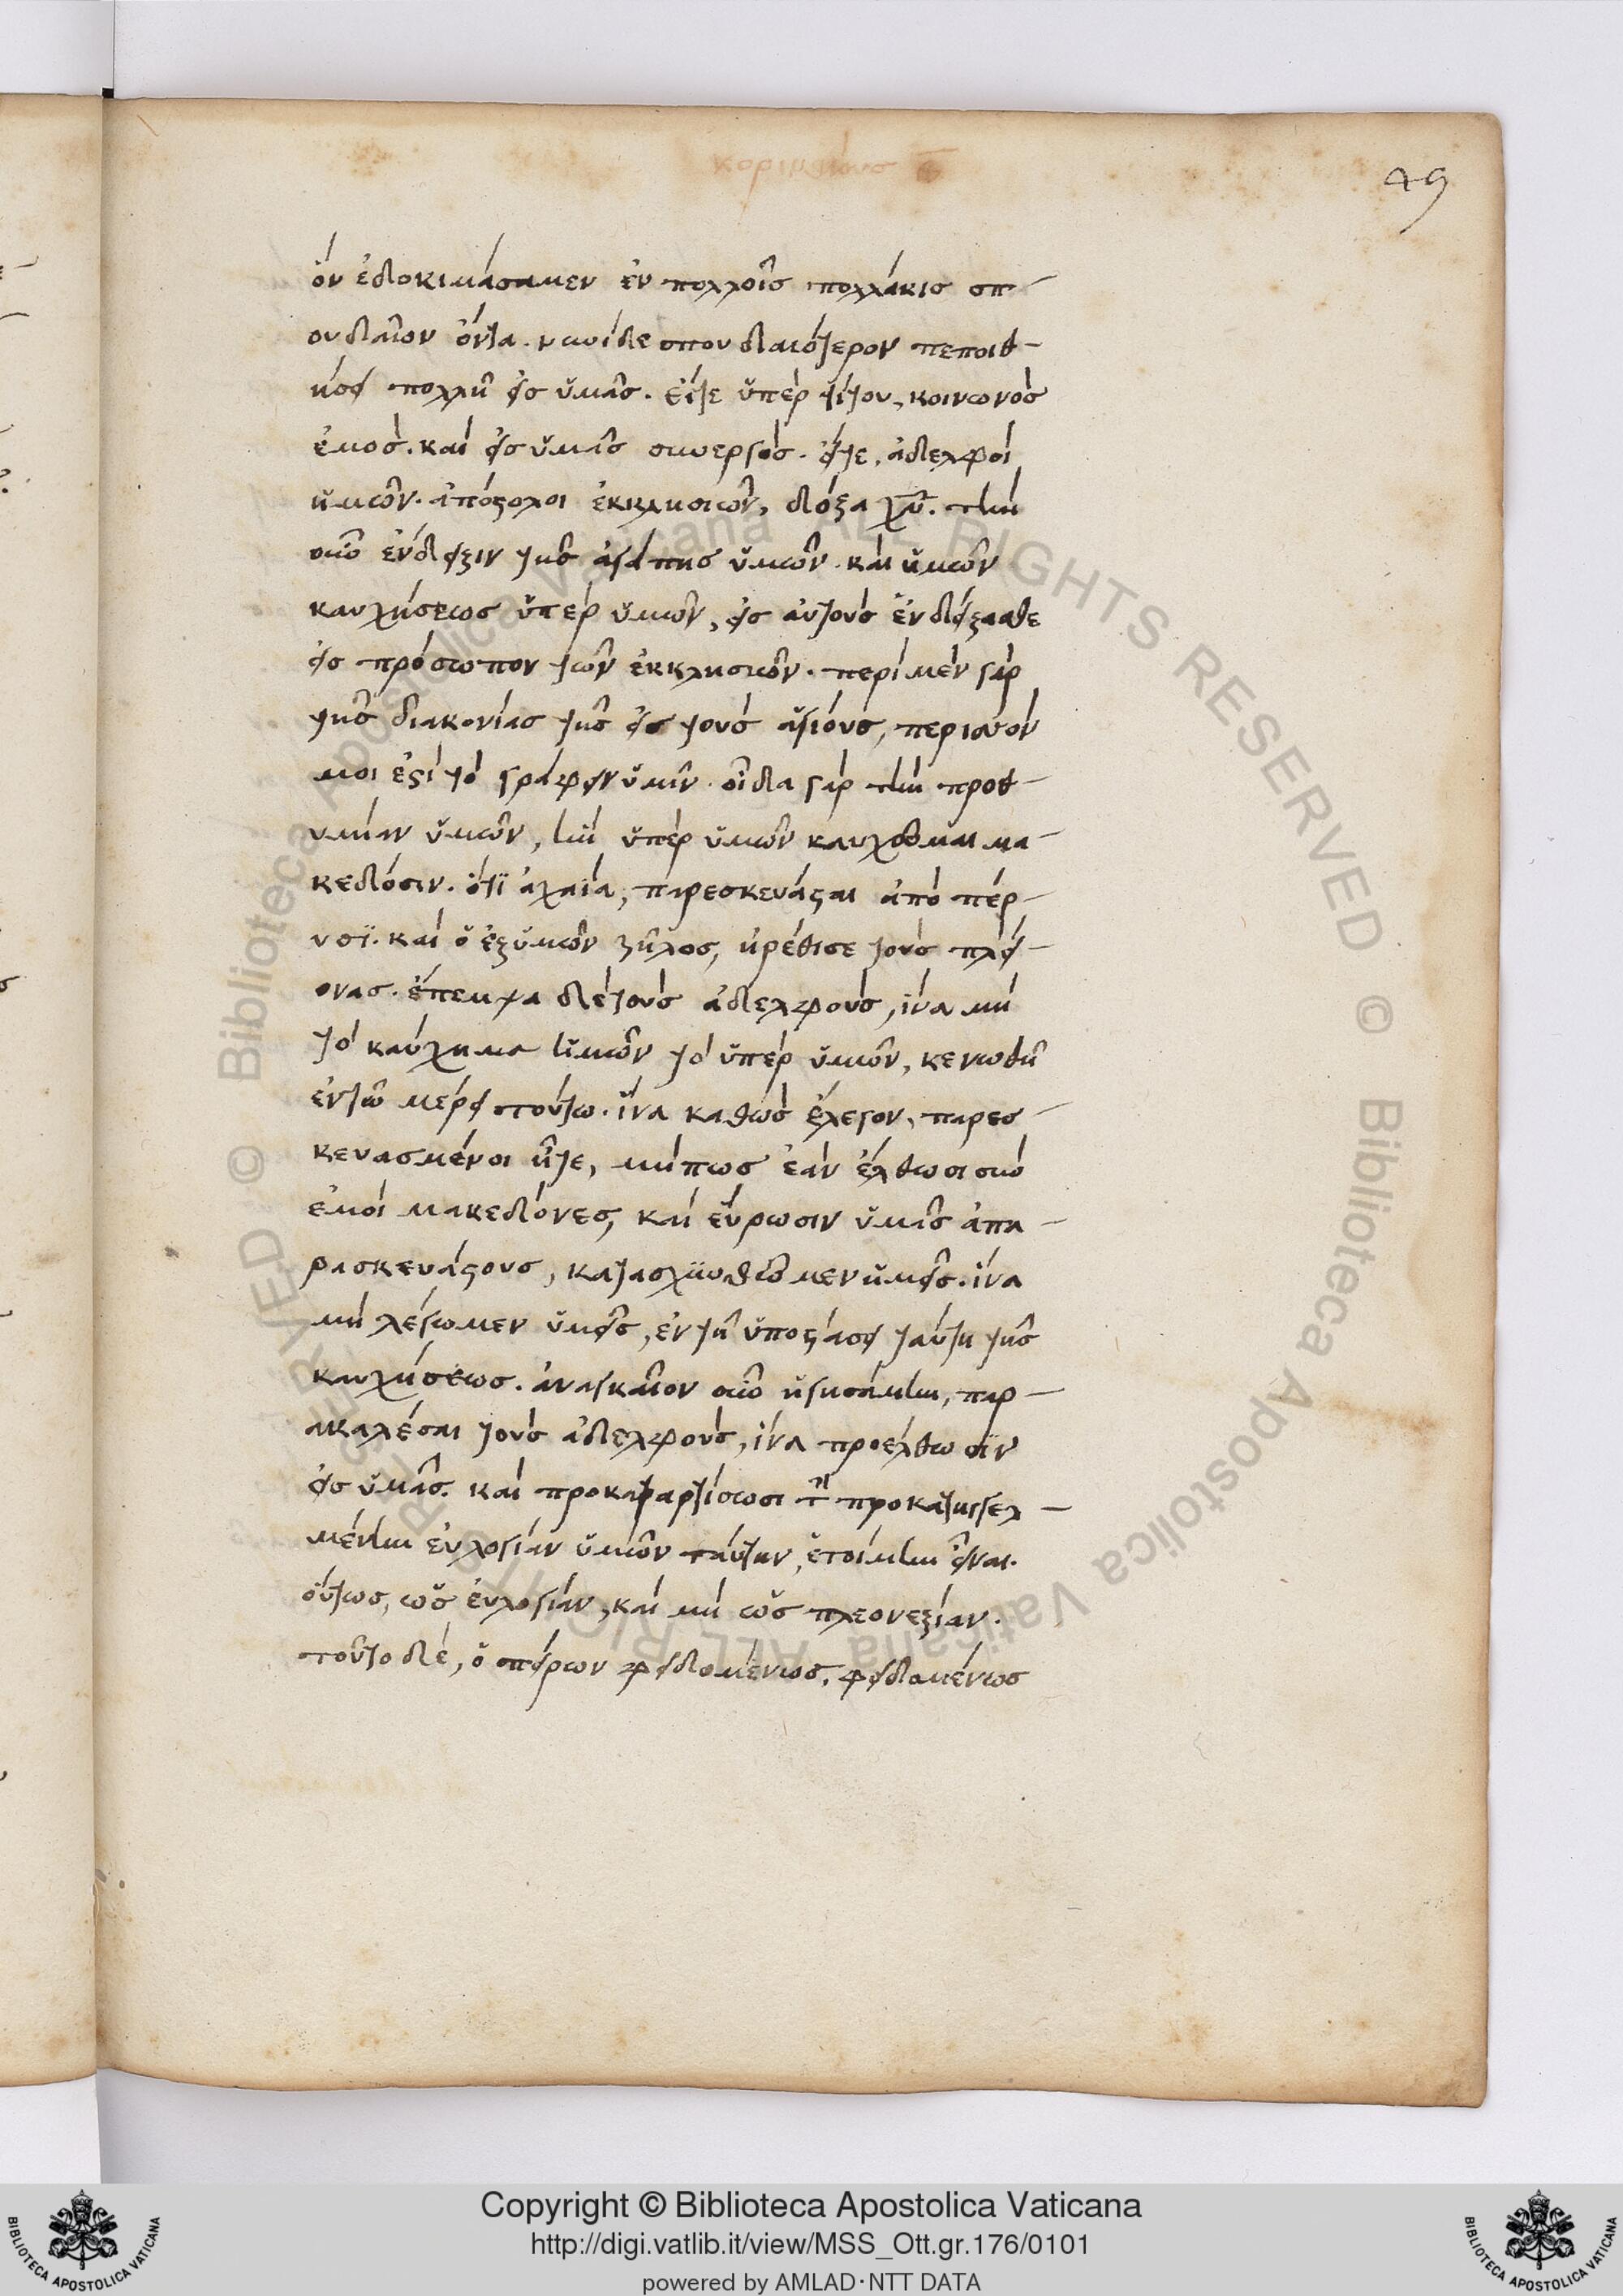 κορινθίους β
49
ὃν ἐδοκιμάσαμεν ἐν πολλοῖς πολλάκις σπ-
ουδαῖον ὄντα. νυνὶ δε σπουδαιότερον πεποιθ-
ήσει πολλῆ εἰς ὑμᾶς. εἴτε ὑπὲρ τίτου, κοινωνὸς
ἐμὸς. καὶ εἰς ὑμᾶς συνεργὸς. εἴτε, ἀδελφοὶ
ἡμῶν. ἀπόστολοι ἐκκλησιῶν, δόξα χυ. τὴν
οὖν ἔνδειξιν τῆς ἀγάπης ὑμῶν. καὶ ἡμῶν
καυχήσεως ὑπὲρ ὑμῶν, εἰς αὐτοὺς ἐνδείξασθε
εἰς πρόσωπον τῶν ἐκκλησιῶν. περὶ μὲν γὰρ
τῆς διακονίας τῆς εἰς τοὺς ἁγίους, περισσόν
μοι ἐστὶ τὸ γράφειν ὑμῖν. οἶδα γὰρ τὴν προθ-
υμίαν ὑμῶν, ἣν ὑπὲρ ὑμῶν καυχῶμαι μα-
κεδόσιν. ὅτι ἀχαΐα, παρεσκεύασται ἀπὸ πέρ-
υσι. καὶ ὁ ἐξ ὑμῶν ζῆλος, ἠρέθισε τοὺς πλεί-
ονας. ἔπεμψα δὲ τοὺς ἀδελφοὺς, ἵνα μὴ
τὸ καύχημα ἡμῶν τὸ ὑπὲρ ὑμῶν, κενωθῆ
ἐν τῶ μέρει τούτω. ἵνα καθὼς ἔλεγον, παρεσ-
κευασμένοι ἦτε, μήπως ἐὰν ἔλθωσι σὺν
ἐμοὶ μακεδόνες, καὶ εὕρωσιν ὑμᾶς ἀπα-
ρασκευάστους, καταισχυνθῶμεν ἡμεῖς. ἵνα
μὴ λέγωμεν ὑμεῖς, ἐν τῆ ὑποστάσει ταύτη τῆς
καυχήσεως. ἀναγκαῖον οὖν ἡγησάμην, παρ-
ακαλέσαι τοὺς ἀδελφοὺς, ἵνα προέλθωσιν
εἰς ὑμᾶς. καὶ προκαταρτίσωσι τὴν προκατηγγελ-
μένην εὐλογίαν ὑμῶν ταύτην, ἑτοίμην εἶναι.
οὕτως, ὡς εὐλογίαν, καὶ μὴ ὡς πλεονεξίαν.
τοῦτο δὲ, ὁ σπείρων φειδομένως, φειδομένως
Copyright © Biblioteca Apostolica Vaticana
http://digi.vatlib.it/view/MSS_Ott.gr.176/0101
powered by AMLAD·NTT DATA